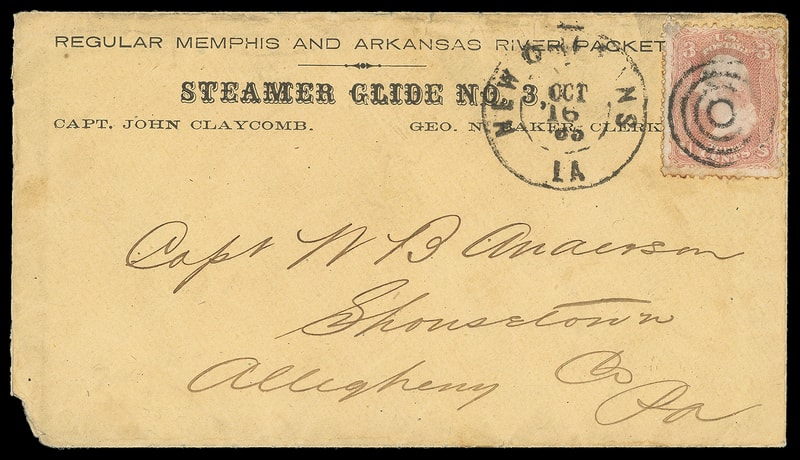 REGULAR MEMPHIS AND ARKANSAS RIVER PACKET
STEAMER GLIDE NO. 3,
CAPT. JOHN CLAYCOMB. GEO. N. BAKER, CLERK
NEW ORLEANS
OCT
16
65
LA
3 U.S. 3
POSTAGE
CENTS
Capt W B Anderson
Shousetown
Allegheny Co
Pa